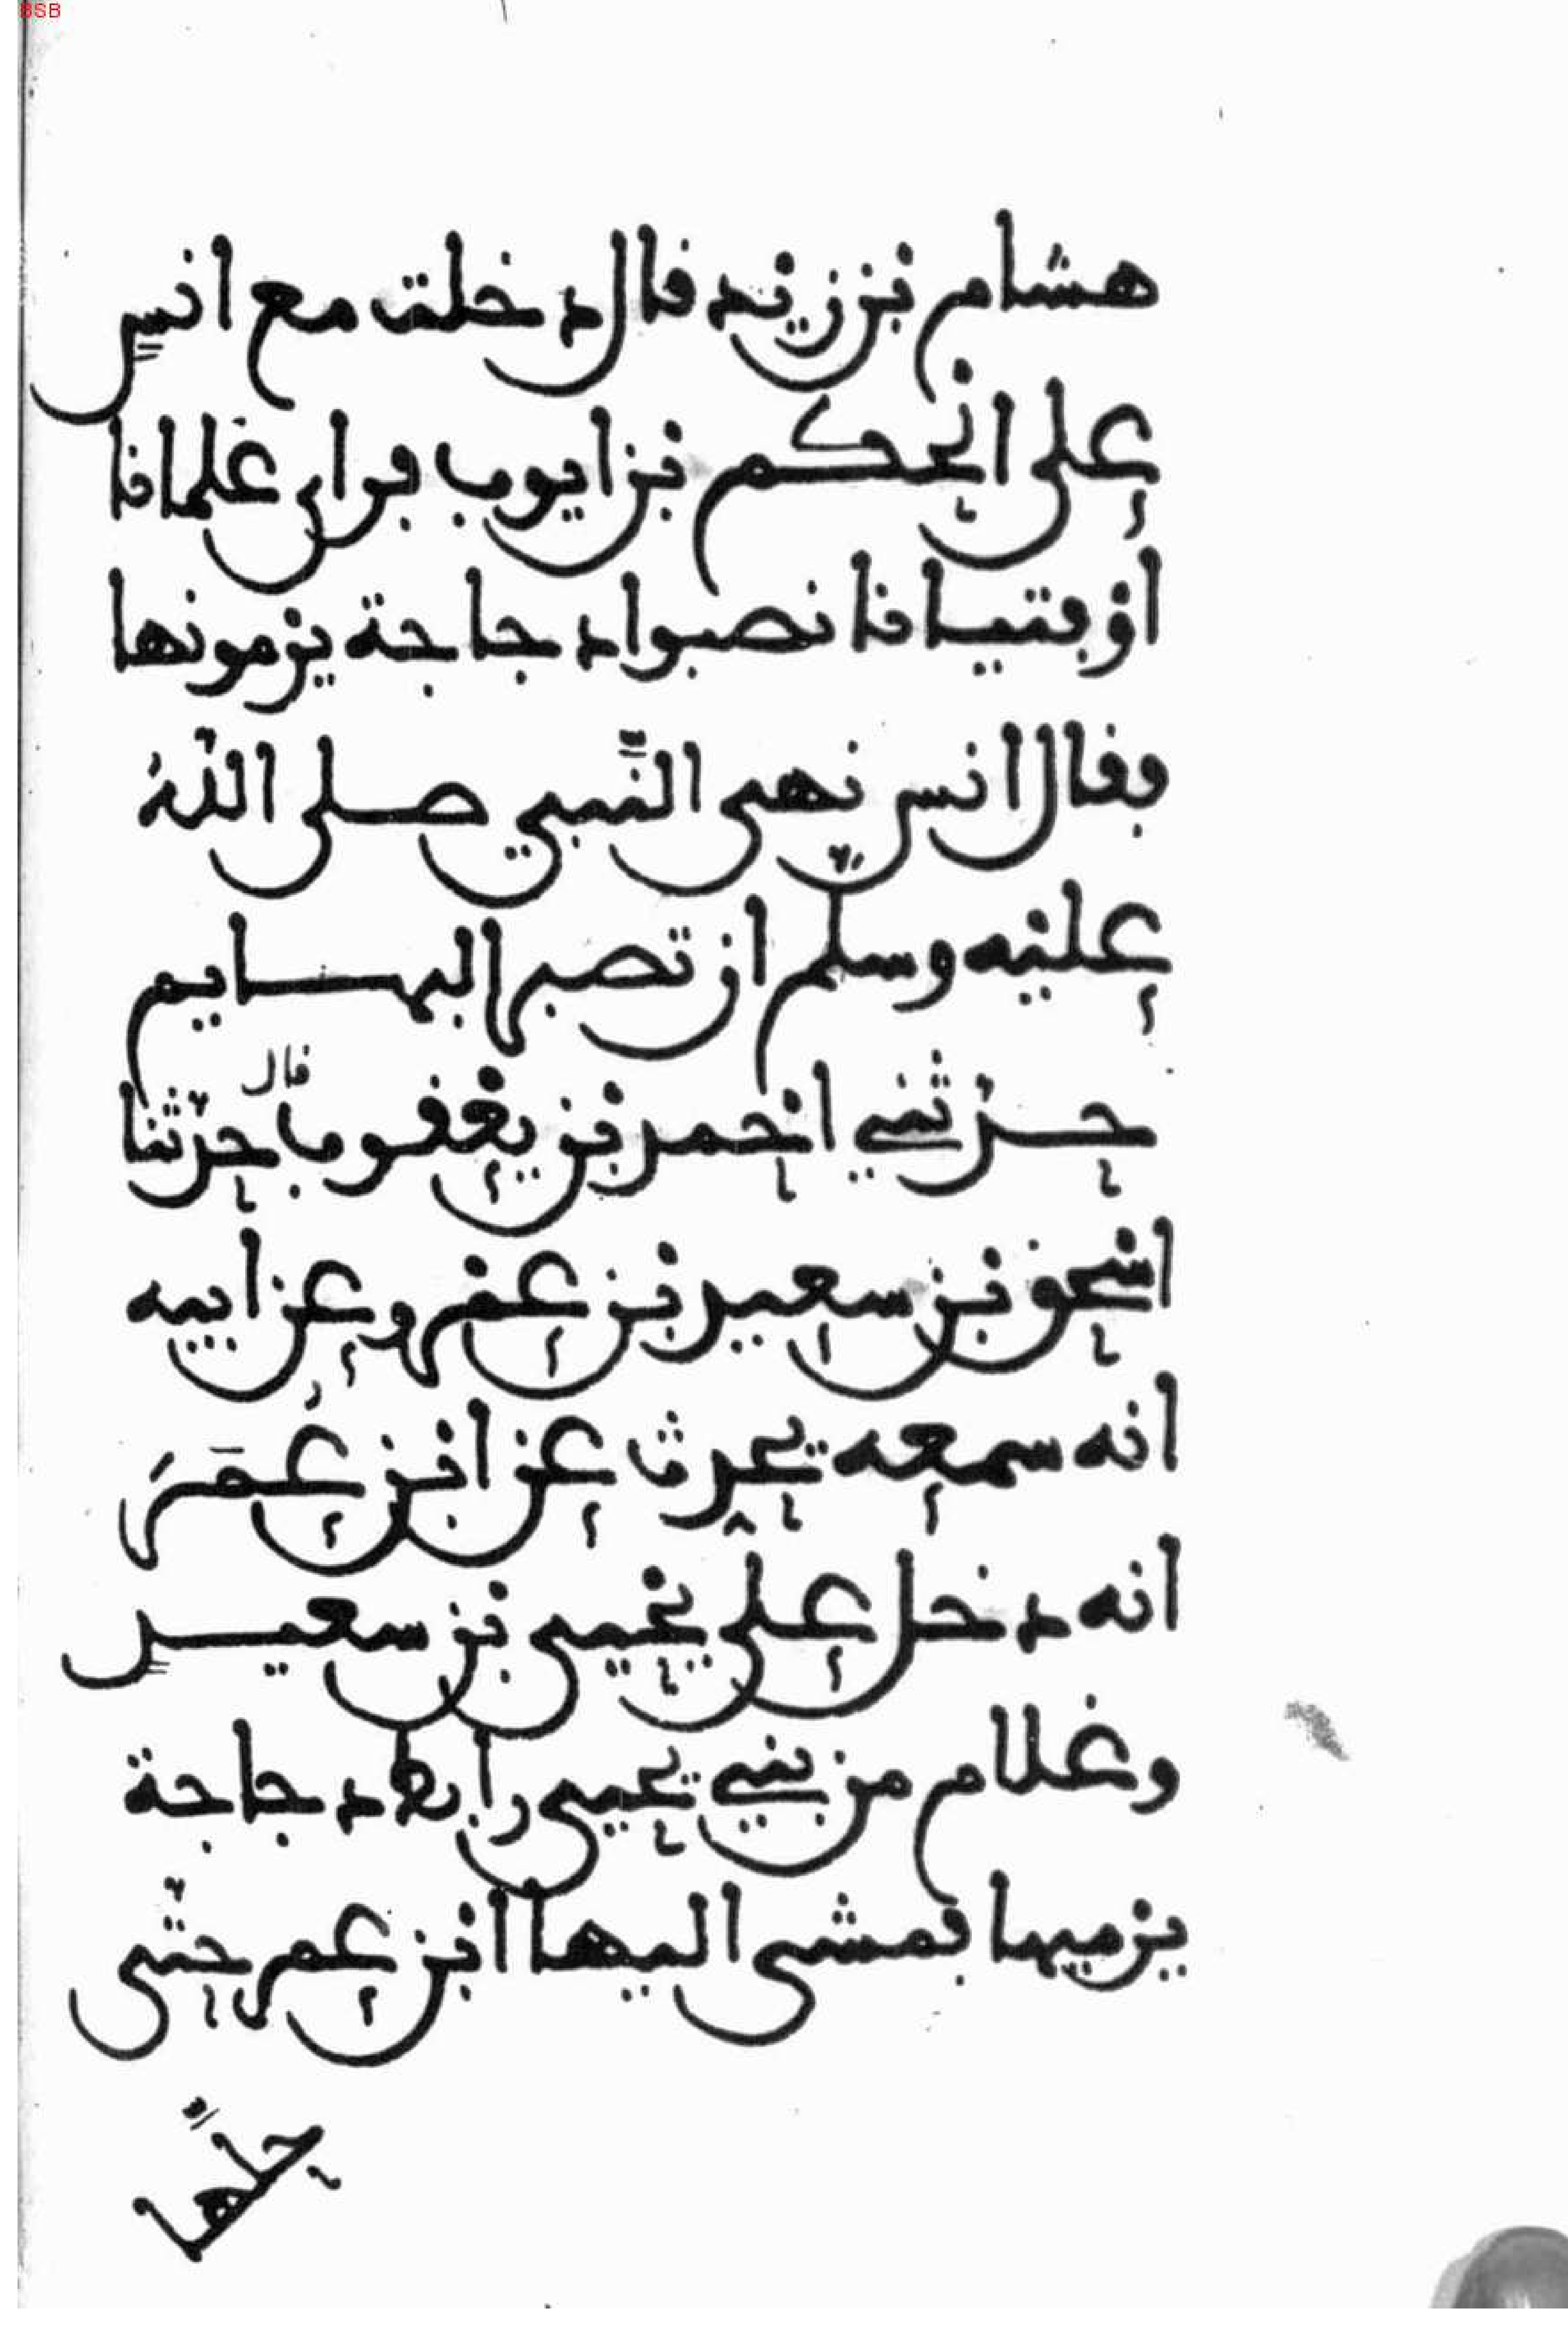 BSB
هشام بن زيد قال دخلت مع انس
على الحكم بن ايوب فراى غلمانا
او فتيانا نصبوا دجاجة يرمونها
فقال انس نهى النَّبي صلى اللّهُ
عليه وسلّم ان تصبر البهايم
حدثني احمد بن يعقوب قال حدّثنا
اسحق بن سعيد بن عمرو عن ابيه
انه سمعه يحدث عن ابن عُمَرَ
انه دخل على يحيى بن سعيد
وغلام من بني يحيى رابط دجاجة
يرميها فمشى اليها ابن عمر حتّى
حلَّها